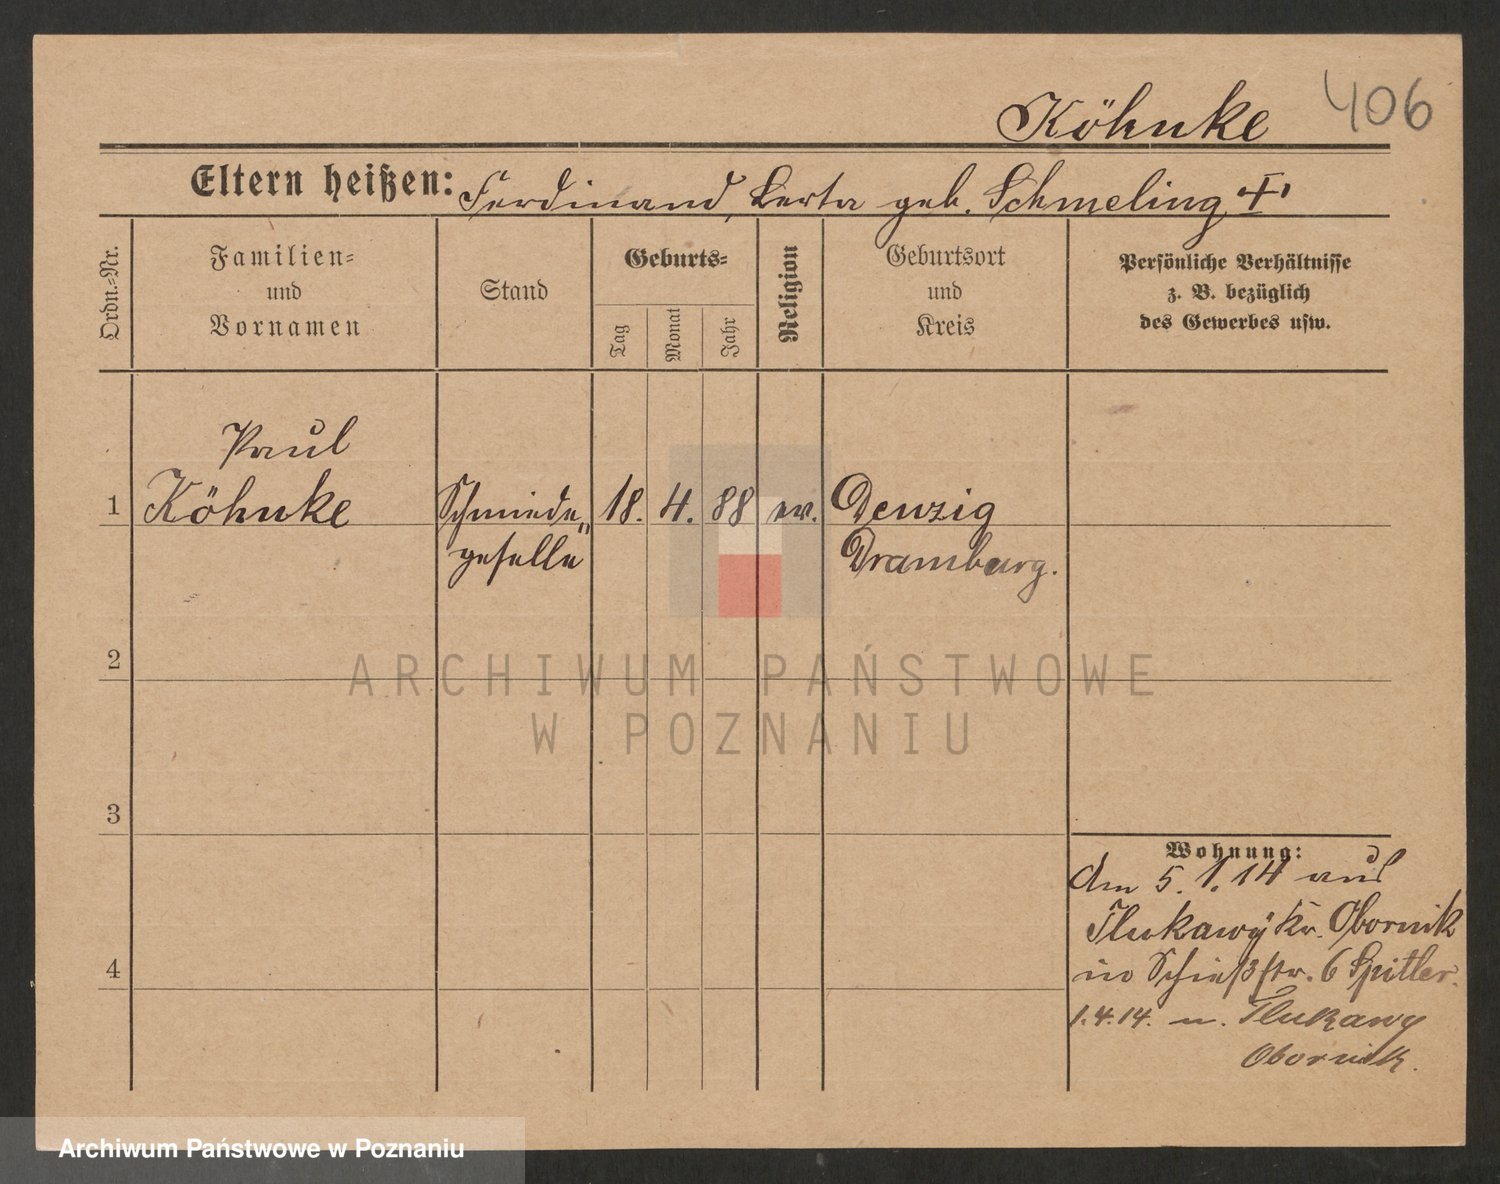 Köhnke 406
Eltern heißen: Ferdinand, Berta geb. Schmeling
Ordn.-Nr.
Familien-
und
Vornamen
Stand
Geburts-
Tag
Monat
Jahr
Religion
Geburtsort
und
Kreis
Persönliche Verhältnisse
z. B. bezüglich
des Gewerbes usw.
Paul
1 Köhnke Schmiede„ 18. 4. 88 ev. Denzig
geselle Dramburg.
2
ARCHIWUM PAŃSTWOWE
W POZNANIU
3
Wohnung:
Am 5.1.14 aus
Tlukawy Kr. Obornik
in Schießstr. 6 Spitler.
4
1.4.14. n. Tlukawy
Obornik.
Archiwum Państwowe w Poznaniu